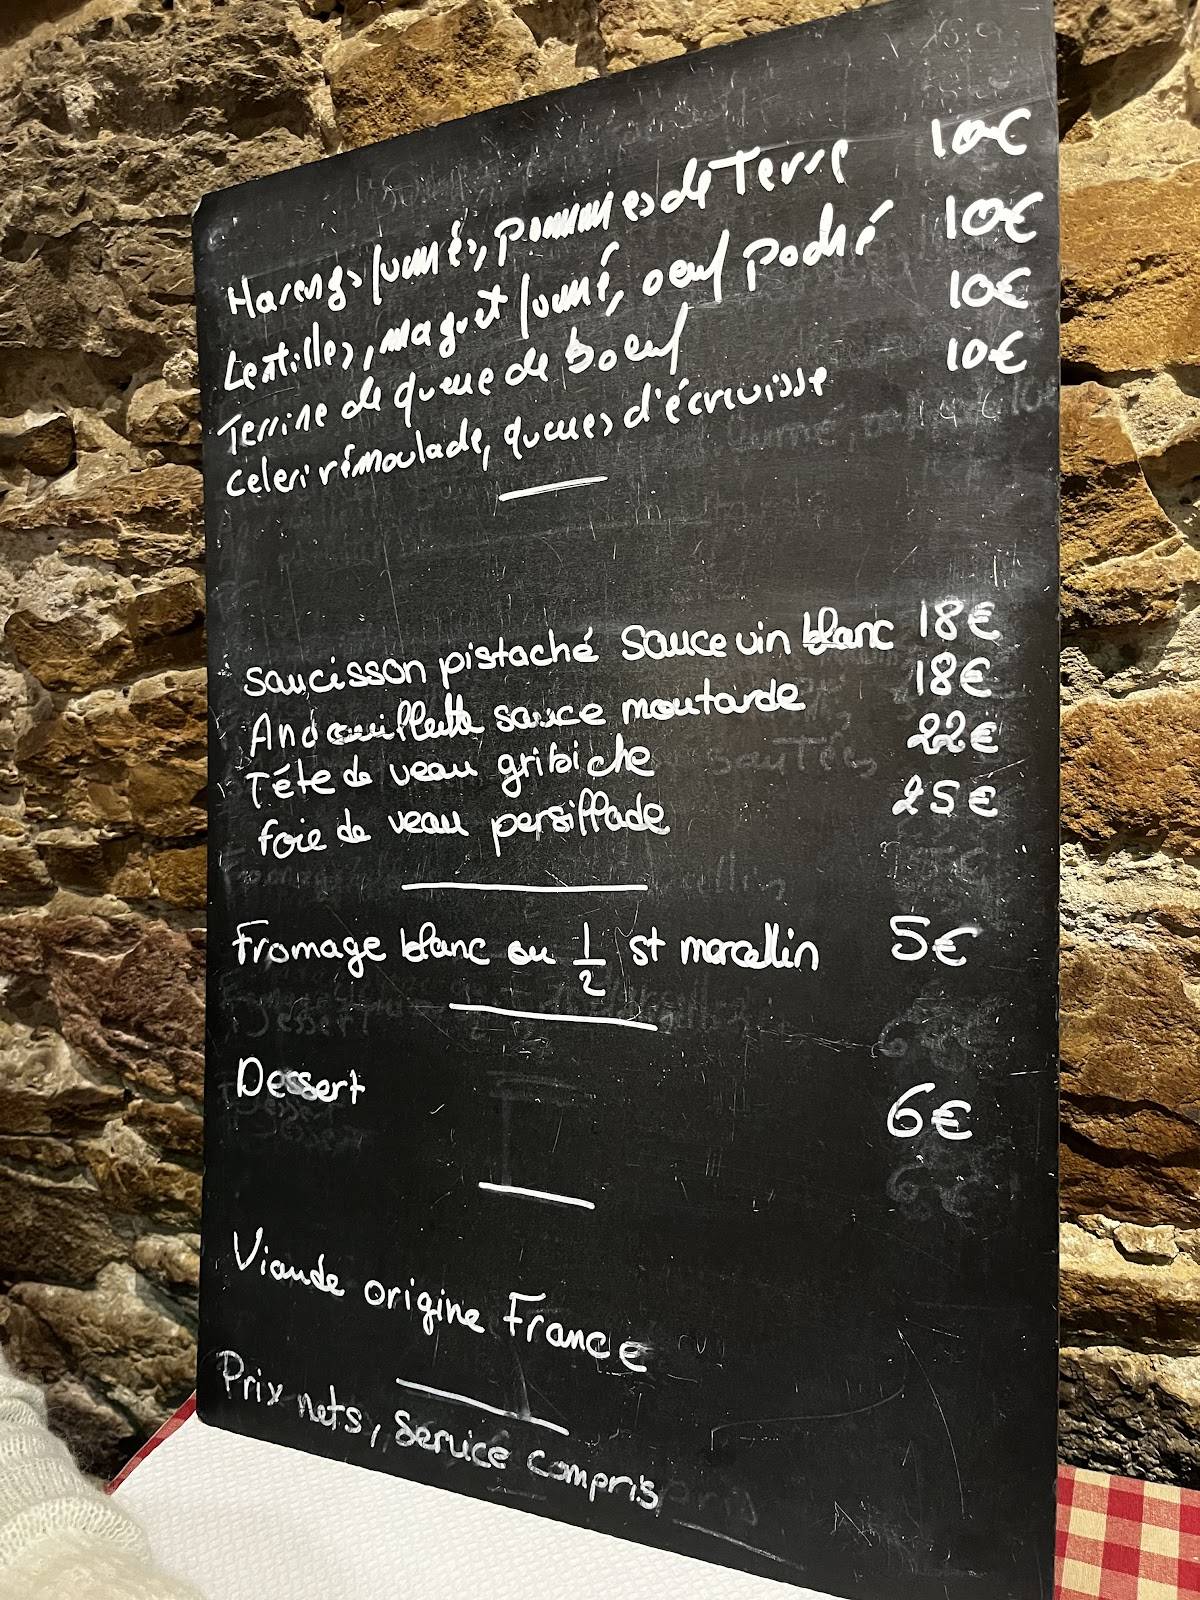 Harengs fumés, pommes de Terre 10€
Lentilles, magret fumé, oeuf poché 10€
Terrine de queue de boeuf 10€
Celeri rémoulade, queues d'écrevisse 10€
Saucisson pistaché sauce vin blanc 18€
Andouillette sauce moutarde 18€
Tête de veau gribiche 22€
foie de veau persillade 25€
Fromage blanc ou 1/2 st marcellin 5€
Dessert 6€
Viande origine France
Prix nets, service compris